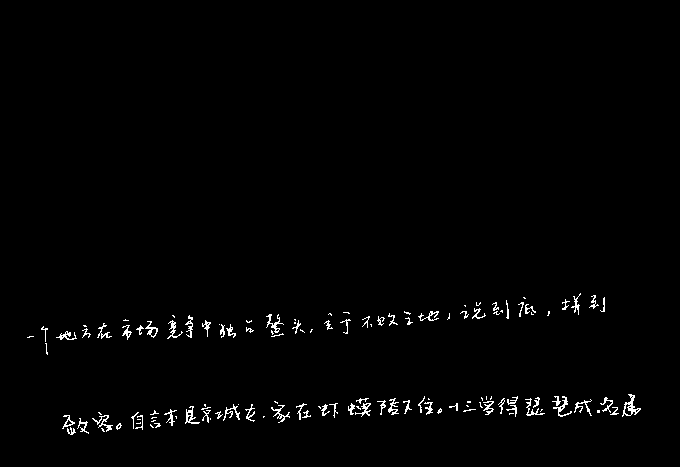 一个地方在市场竞争中独占鳌头,立于不败之地,说到底,拼到
故客。自言本是京城女,家在虾蟆陵下住。十三学得琵琶成,名属